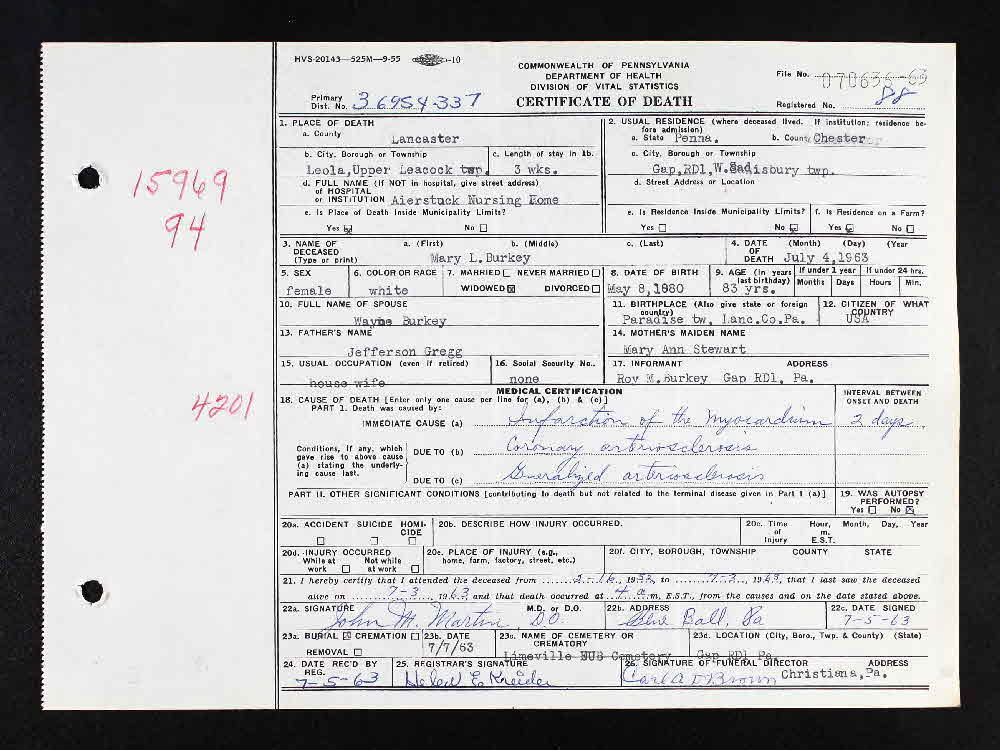 HVS-20143—525M—9-55 -10
COMMONWEALTH OF PENNSYLVANIA
DEPARTMENT OF HEALTH
DIVISION OF VITAL STATISTICS
CERTIFICATE OF DEATH
File No. 070636-63
Primary Dist. No. 36954-337
Registered No. 88
15969
94
4201
1. PLACE OF DEATH
a. County Lancaster
b. City, Borough or Township
Leola,Upper Leacock twp.
c. Length of stay in 1b.
3 wks.
d. FULL NAME (If NOT in hospital, give street address)
of HOSPITAL
or INSTITUTION Aierstuck Nursing Home
e. Is Place of Death Inside Municipality Limits?
Yes No
2. USUAL RESIDENCE (where deceased lived. If institution: residence before admission)
a. State Penna. b. County Chester
c. City, Borough or Township
Gap,RD1,W.Sadisbury twp.
d. Street Address or Location
e. Is Residence Inside Municipality Limits?
Yes No
f. Is Residence on a Farm?
Yes No
3. NAME OF DECEASED (Type or print)
a. (First) b. (Middle) c. (Last)
Mary L.Burkey
4. DATE OF DEATH (Month) (Day) (Year
July 4,1963
5. SEX
female
6. COLOR OR RACE
white
7. MARRIED NEVER MARRIED
WIDOWED DIVORCED
8. DATE OF BIRTH
May 8,1880
9. AGE (In years last birthday)
83 yrs.
If under 1 year
Months Days
If under 24 hrs.
Hours Min.
10. FULL NAME OF SPOUSE
Wayne Burkey
11. BIRTHPLACE (Also give state or foreign country)
Paradise tw, Lanc.Co.Pa.
12. CITIZEN OF WHAT COUNTRY
USA
13. FATHER'S NAME
Jefferson Gregg
14. MOTHER'S MAIDEN NAME
Mary Ann Stewart
15. USUAL OCCUPATION (even if retired)
house wife
16. Social Security No.
none
17. INFORMANT ADDRESS
Roy M.Burkey Gap RD1, Pa.
MEDICAL CERTIFICATION
18. CAUSE OF DEATH [Enter only one cause per line for (a), (b) & (c)]
PART 1. Death was caused by:
INTERVAL BETWEEN ONSET AND DEATH
IMMEDIATE CAUSE (a) Infarction of the myocardium 2 days
Conditions, if any, which gave rise to above cause (a) stating the underlying cause last.
DUE TO (b) Coronary arteriosclerosis
DUE TO (c) Generalized arteriosclerosis
PART II. OTHER SIGNIFICANT CONDITIONS [contributing to death but not related to the terminal disease given in Part 1 (a)]
19. WAS AUTOPSY PERFORMED?
Yes No
20a. ACCIDENT SUICIDE HOMICIDE
20b. DESCRIBE HOW INJURY OCCURRED.
20c. Time of Injury Hour, Month, Day, Year
m.
E.S.T.
20d. INJURY OCCURRED
While at work Not while at work
20e. PLACE OF INJURY (e.g., home, farm, factory, street, etc.)
20f. CITY, BOROUGH, TOWNSHIP COUNTY STATE
21. I hereby certify that I attended the deceased from 1952, to 7-3, 1963, that I last saw the deceased
alive on 7-3, 1963 and that death occurred at 4 a m, E.S.T., from the causes and on the date stated above.
22a. SIGNATURE M.D. or D.O.
John M. Martin D.O.
22b. ADDRESS
Blue Ball, Pa
22c. DATE SIGNED
7-5-63
23a. BURIAL CREMATION
REMOVAL
23b. DATE
7/7/63
23c. NAME OF CEMETERY OR CREMATORY
Limeville EUB Cemetery
23d. LOCATION (City, Boro., Twp. & County) (State)
Gap RD1 Pa.
24. DATE REC'D BY REG.
7-5-63
25. REGISTRAR'S SIGNATURE
Helen E Kreider
26. SIGNATURE OF FUNERAL DIRECTOR ADDRESS
Carl A D Brown Christiana,Pa.